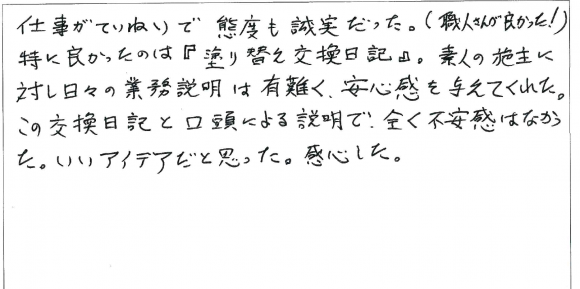 仕事がていねいで 態度も誠実だった。(職人さんが良かった!)
特に良かったのは『塗り替え交換日記』。素人の施主に
対し日々の業務説明は有難く、安心感を与えてくれた。
この交換日記と口頭による説明で、全く不安感はなかっ
た。いいアイデアだと思った。感心した。